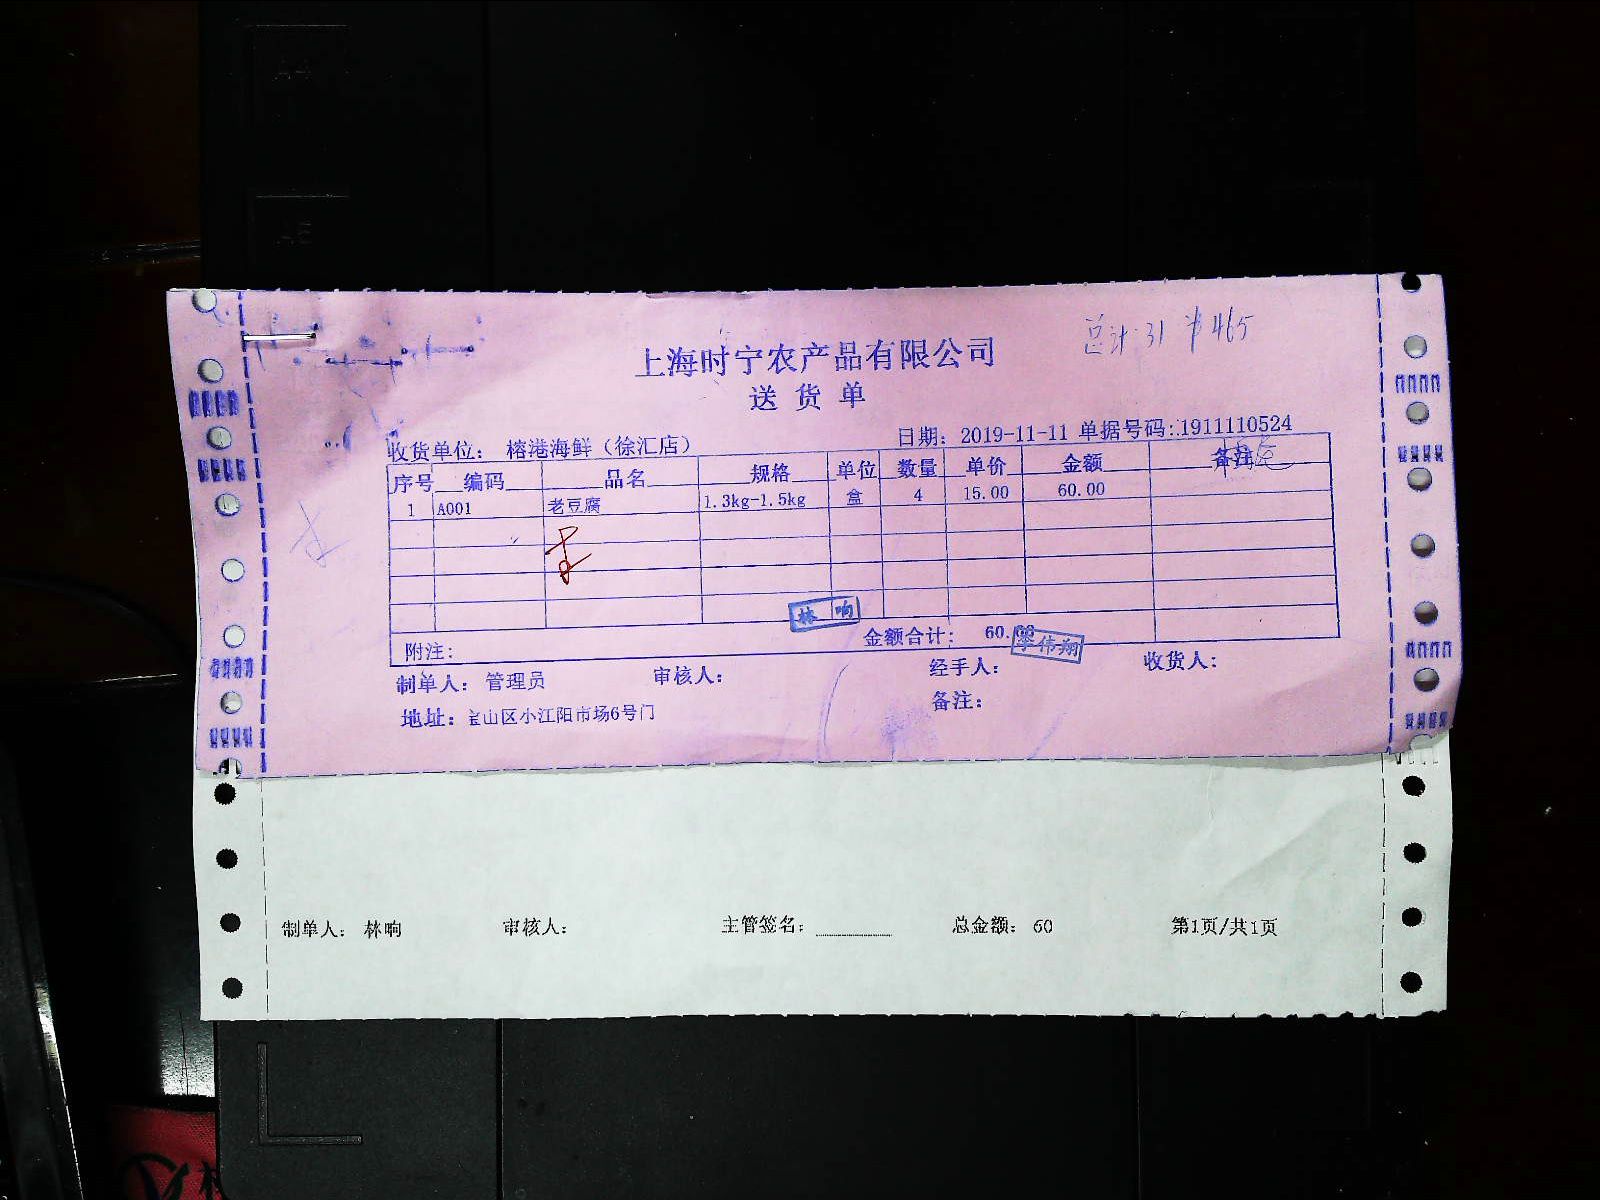 总计:31 ¥465
上海时宁农产品有限公司
送 货 单
收货单位: 榕港海鲜（徐汇店） 日期: 2019-11-11 单据号码:1911110524
序号 编码 品名 规格 单位 数量 单价 金额 备注
1 A001 老豆腐 1.3kg-1.5kg 盒 4 15.00 60.00
林 响
附注: 金额合计: 60.00
伟翔
制单人: 管理员 审核人: 经手人: 收货人:
地址: 宝山区小江阳市场6号门 备注:
制单人: 林响 审核人: 主管签名: 总金额: 60 第1页/共1页